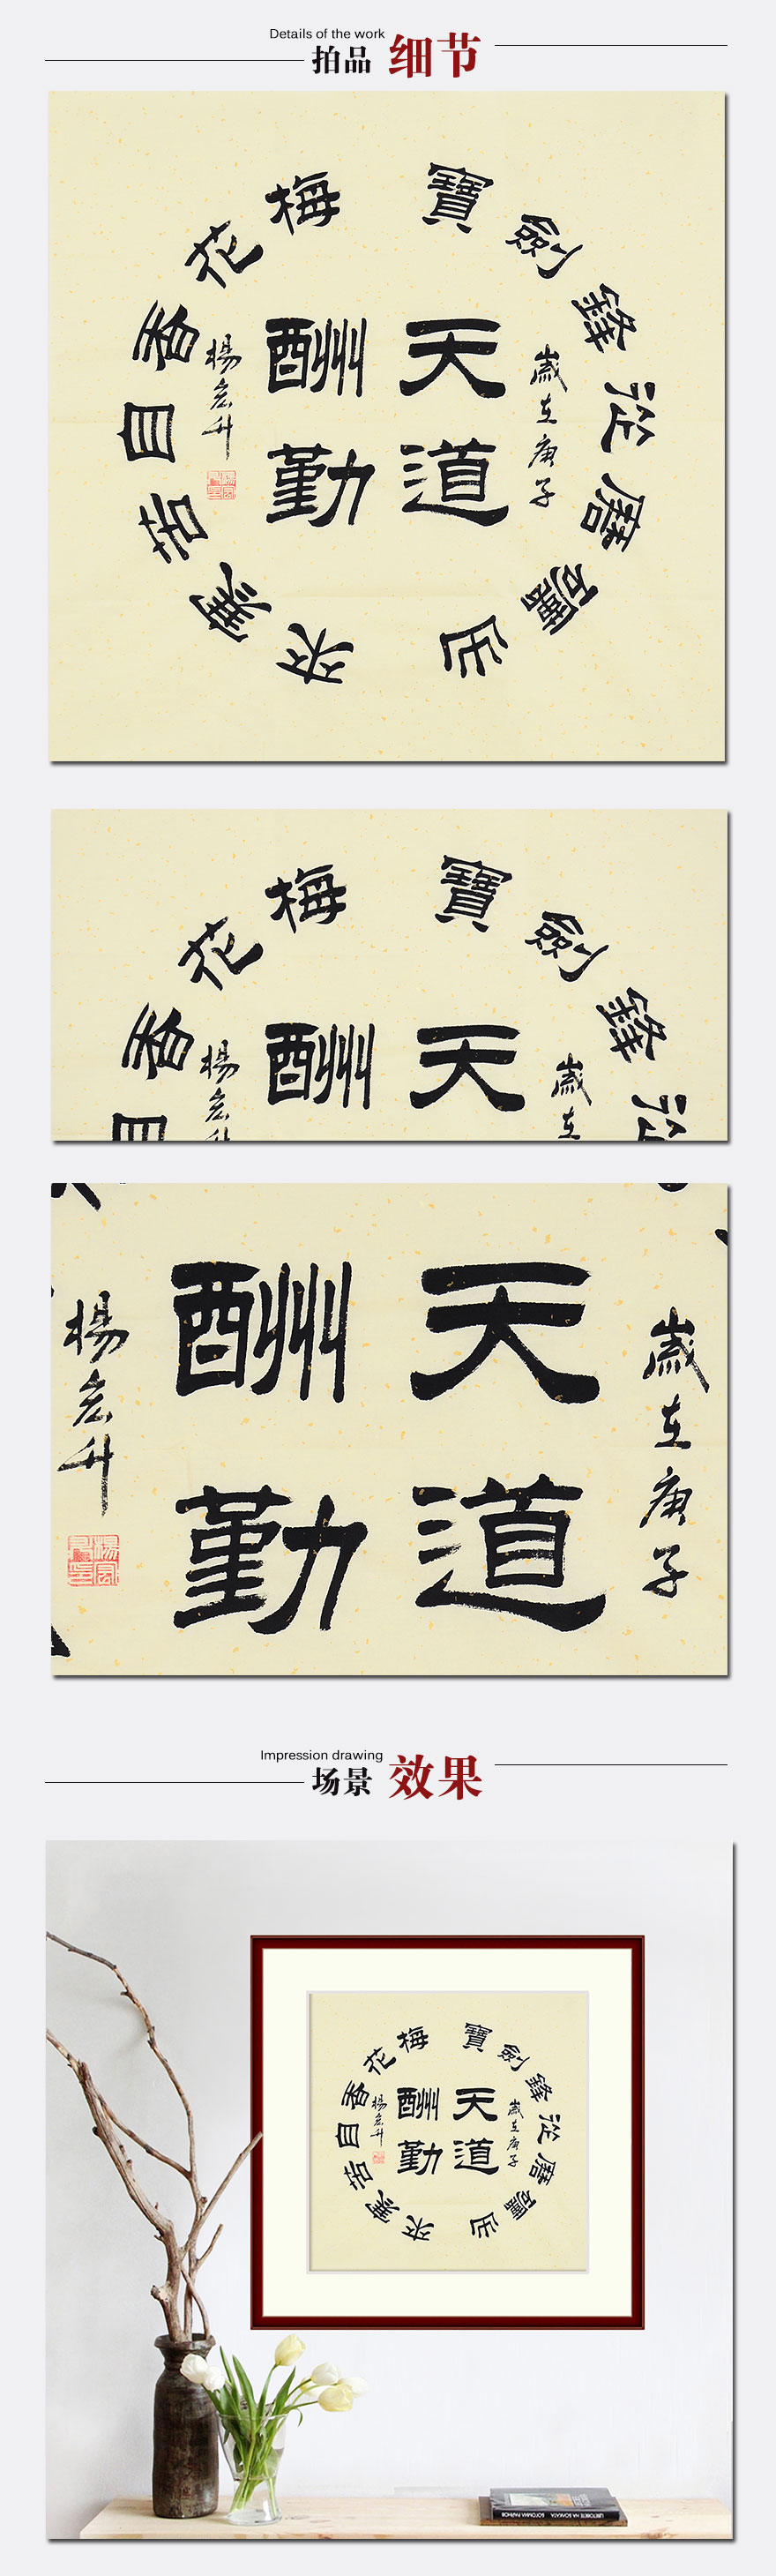 Details of the work
拍品 细节
天道
酬勤
寶劍鋒從磨礪出
梅花香自苦寒來
歲在庚子
楊宏升
寶劍鋒從
梅花香自
天
酬
歲在
楊宏
天道
酬勤
歲在庚子
楊宏升
Impression drawing
场景 效果
寶劍鋒從磨礪出
梅花香自苦寒來
天道
酬勤
歲在庚子
楊宏升